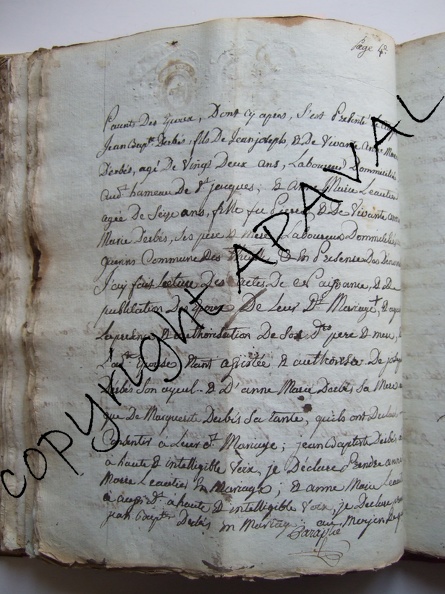 Page 4
Parents Des Epoux, Dont cy apres, s'est Presenté
Jean Bapte Derbès, fils De Jean Joseph, & De Vivante Anne Marie
Derbès, agé De Vingt Deux ans, Laboureur Domicilié
audt hameau De St Jacques; & Anne Marie Léautier
agée De Seize ans, fille feu Pierre, & De Vivante anne
Marie Derbès, ses pere & Mere Laboureurs Domiciliés
Commune Des & en Presence Des
J'ay fait Lecture Des actes De Naissance, & De
publication Des epoux De Leur Dt Mariage, &
& authorisation De Ses Drs pere & mere,
Lade Epouse etant assistée & authorisée De
Derbès Son ayeul & De anne Marie Derbès Sa Mere
que De Marguerite Derbès Sa tante, qu'ils ont Declaré
Consentir a Leur dt Mariage; jean Baptiste Derbès
a haute & intelligible Voix, je Déclare Prendre anne
Marie Leautier en Mariage; & anne Marie Leautier
a aussi dt a haute & intelligible Voix, je Declare
Jean Bapte Derbès en Mariage; au Moyen
Paraphé
copyright APAVAL